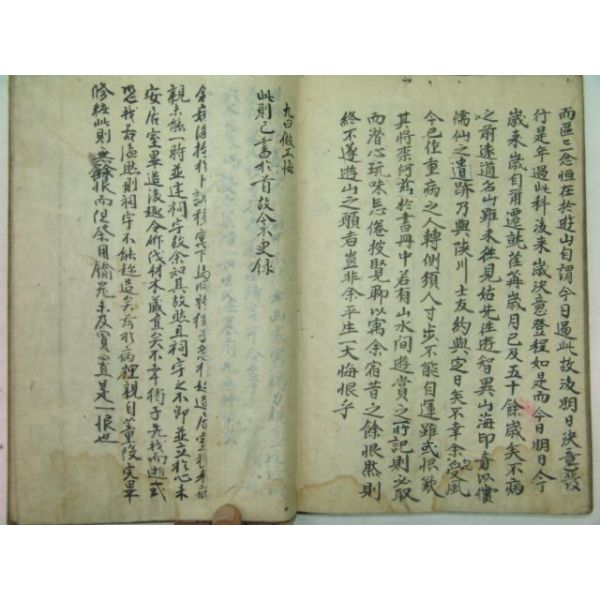 而區二念恒在於遊山自謂今日過此故汝明日決意登
行是年過此科後來歲決意登程如是而今日明日今
歲來歲自爾遷就荏苒歲月已及五十餘歲矣不病
之前遠道名山雖未往見姑先往遊智異山海印寺以償
儒仙之遺跡乃與陜川士友約與定日矣不幸余受風
今已作重病之人轉側須人寸步不能自運雖或恨歎
其將柰何茲於書冊中若有山水間遊賞之所記則必取
而潛心玩味忘倦披覽聊以寓余宿昔之餘恨然則
終不遂遊山之願者豈非余平生一大悔恨乎
九曰
此則已書於首故余不更錄
親未能一時並建祠宇故余知其故然且祠宇之不卽並立於心未
安居室畢造後趣令斫伐材木藏置矣不幸衡子先我而逝或
恐我若溘然則祠宇不能趁造矣於病裡親自董役突畢
修粧此則無餘恨而但祭用 未及買置是一恨也